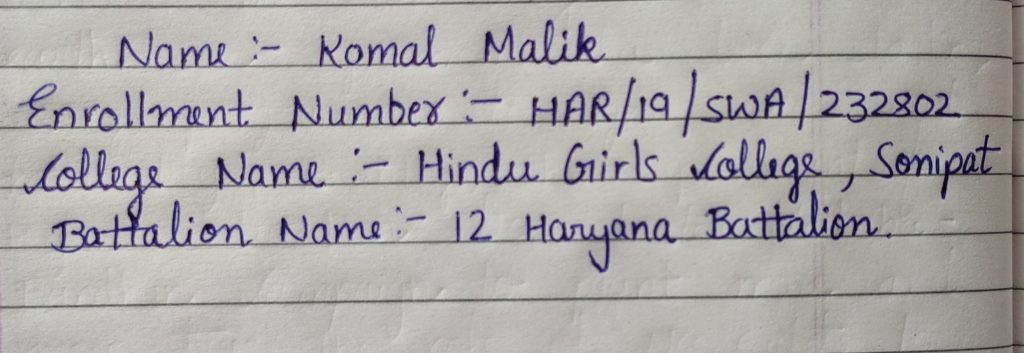 Name :- Komal Malik
Enrollment Number :- HAR/19/SWA/232802
College Name :- Hindu Girls College, Sonipat
Battalion Name :- 12 Haryana Battalion.